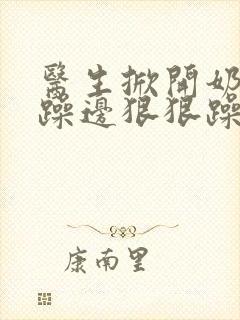 醫生掀開奶
躁邊狠狠躁
康南里